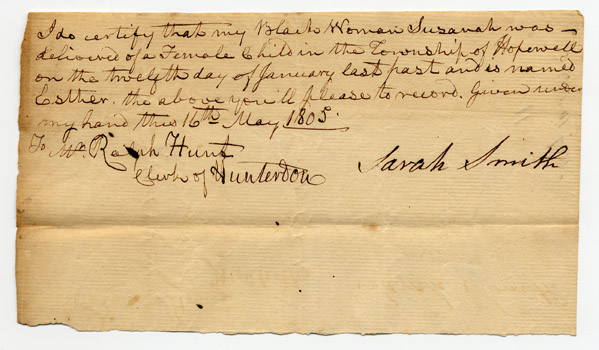 I do certify that my Black Woman Suzanah was
delivered of a Female Child in the Township of Hopewell
on the twelfth day of January last past and is named
Esther. the above you'll please to record. Given under
my hand this 16th May 1805.
To Mr. Ralph Hunt
Clerk of Hunterdon
Sarah Smith